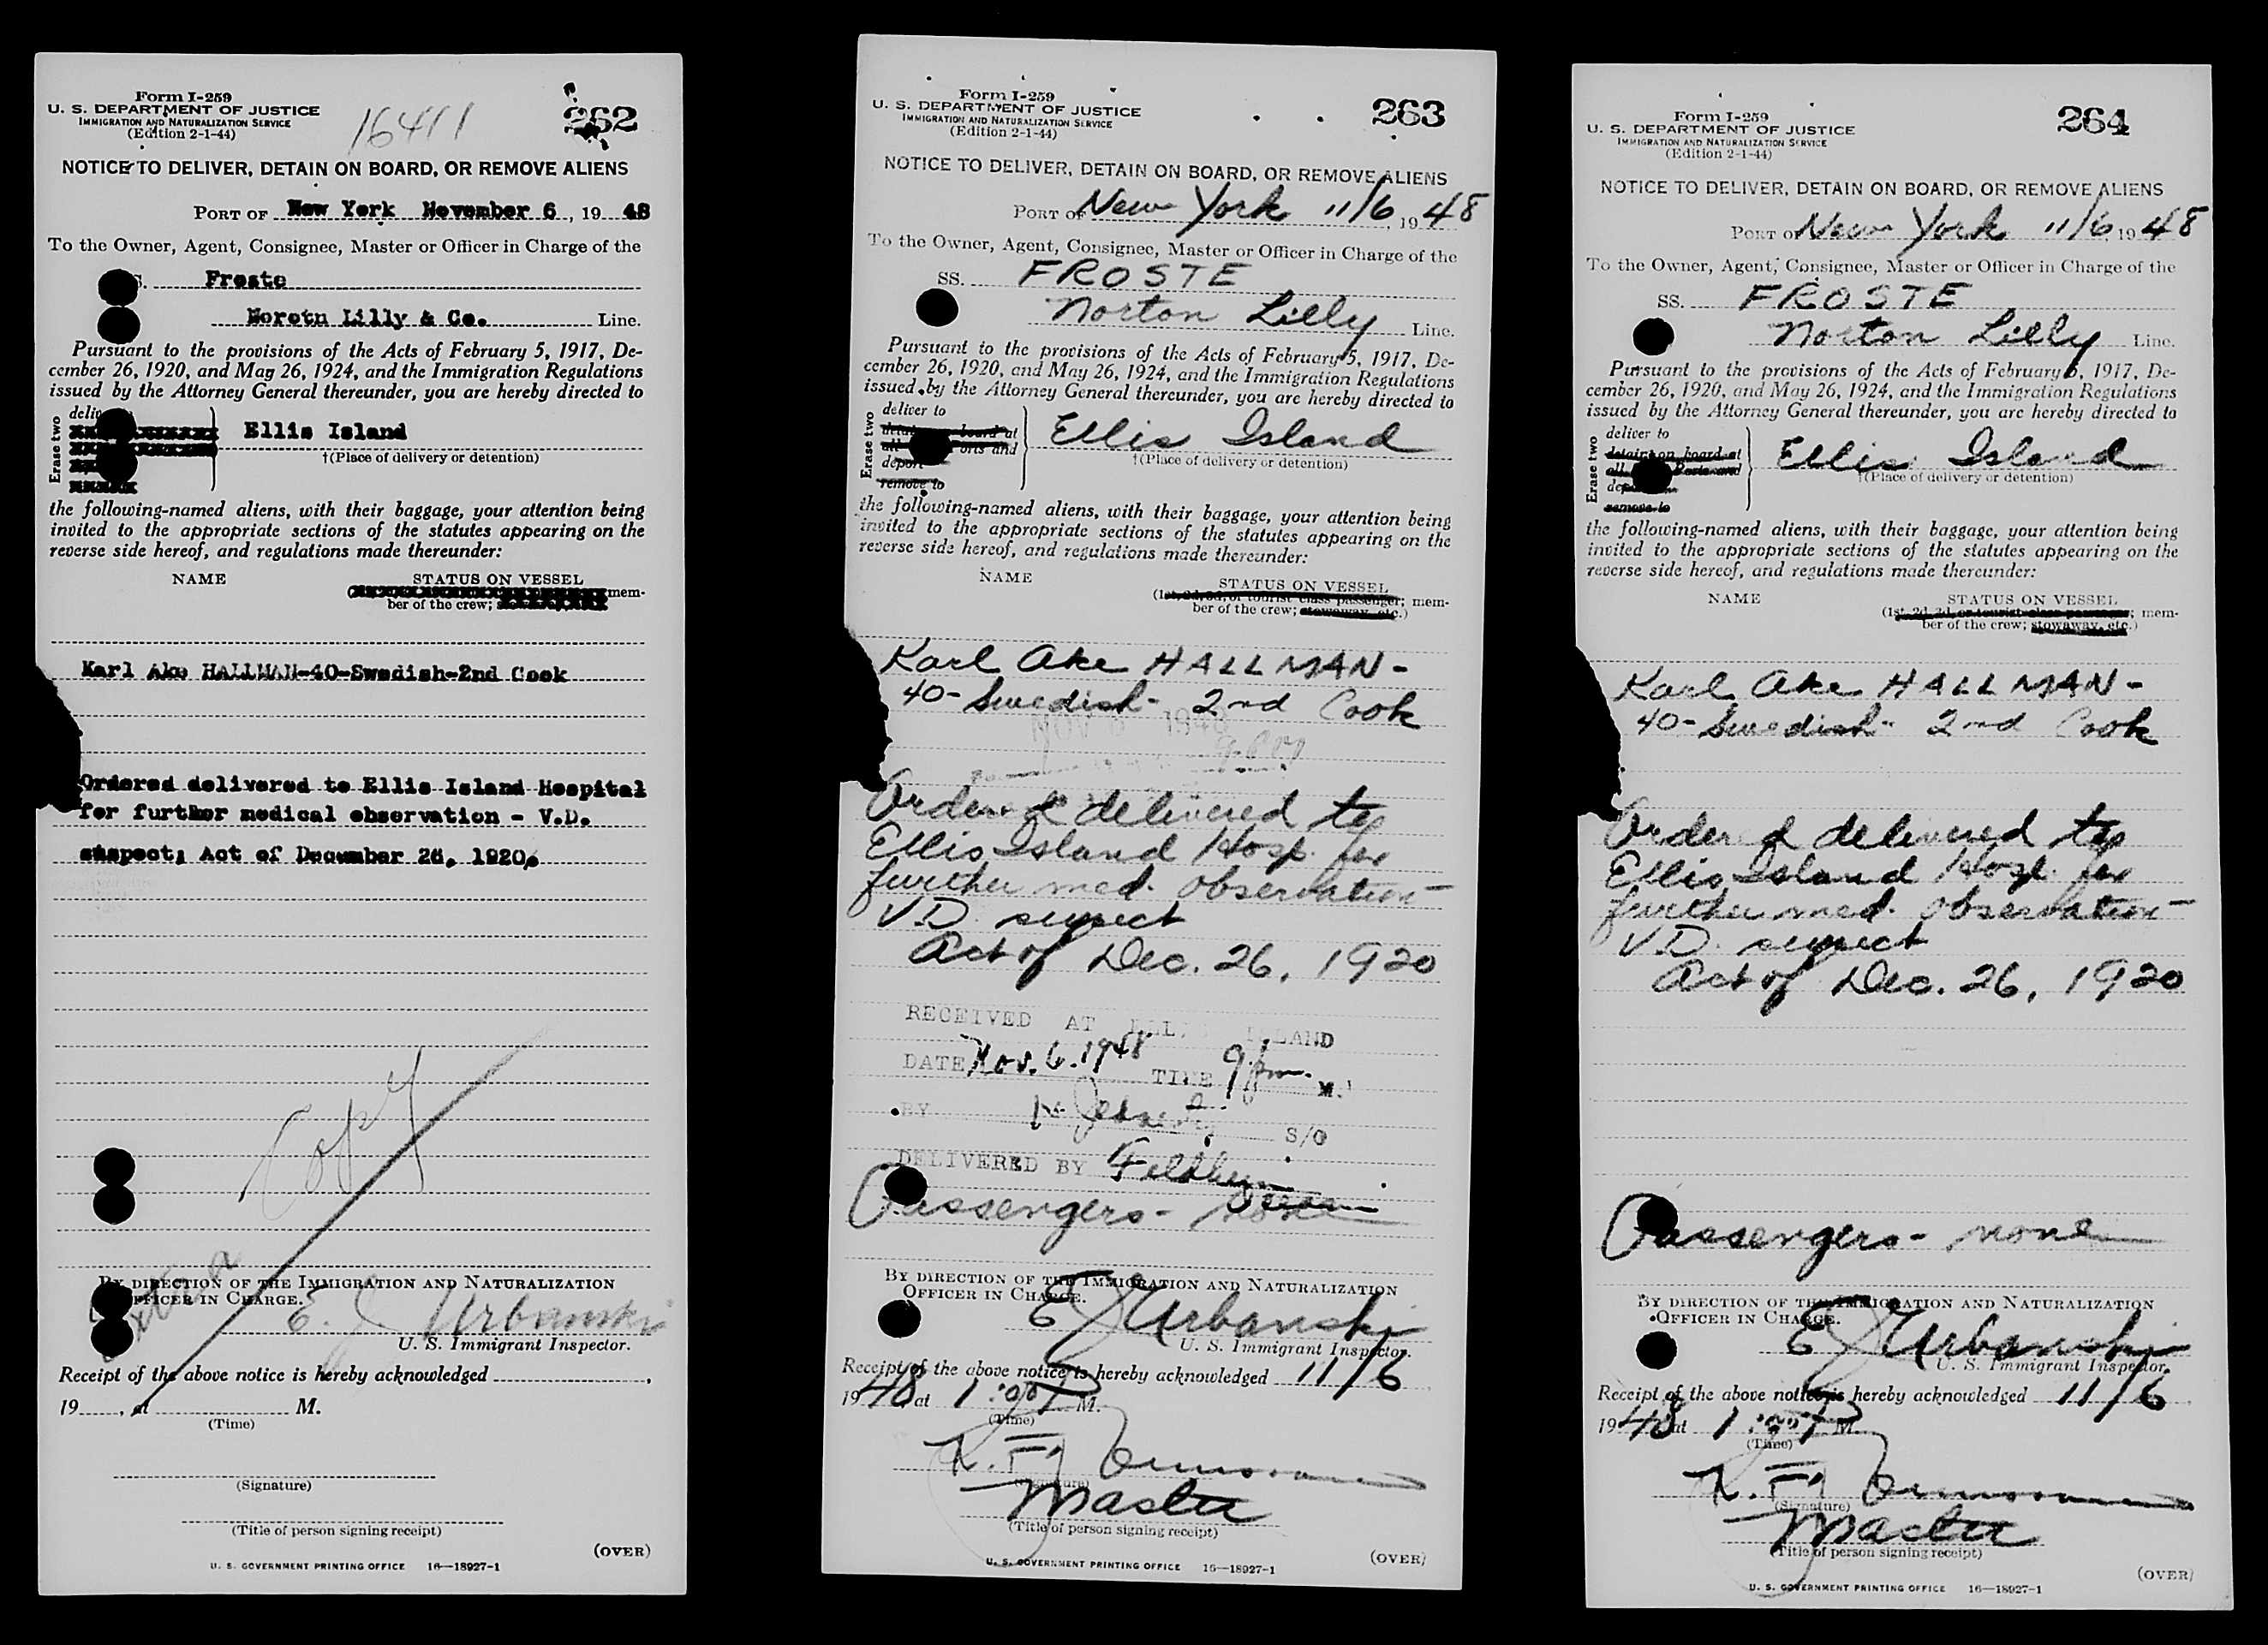 Form I-259
U. S. DEPARTMENT OF JUSTICE
IMMIGRATION AND NATURALIZATION SERVICE
(Edition 2-1-44)
16411
262
NOTICE TO DELIVER, DETAIN ON BOARD, OR REMOVE ALIENS
PORT OF New York November 6, 19 48
To the Owner, Agent, Consignee, Master or Officer in Charge of the
Froste
Norotn Lilly & Co. Line.
Pursuant to the provisions of the Acts of February 5, 1917, De-
cember 26, 1920, and May 26, 1924, and the Immigration Regulations
issued by the Attorney General thereunder, you are hereby directed to
Erase two
Ellis Island
†(Place of delivery or detention)
the following-named aliens, with their baggage, your attention being
invited to the appropriate sections of the statutes appearing on the
reverse side hereof, and regulations made thereunder:
NAME STATUS ON VESSEL
mem-
ber of the crew;
Karl Ake HALLMAN-40-Swedish-2nd Cook
Ordered delivered to Ellis Island Hospital
for further medical observation - V.D.
suspect; Act of December 26, 1920.
Copy
extra
BY DIRECTION OF THE IMMIGRATION AND NATURALIZATION
OFFICER IN CHARGE.
E. J. Urbanski
U. S. Immigrant Inspector.
Receipt of the above notice is hereby acknowledged
19 , at M.
(Time)
(Signature)
(Title of person signing receipt)
(OVER)
U. S. GOVERNMENT PRINTING OFFICE 16—18927-1
Form I-259
U. S. DEPARTMENT OF JUSTICE
IMMIGRATION AND NATURALIZATION SERVICE
(Edition 2-1-44)
263
NOTICE TO DELIVER, DETAIN ON BOARD, OR REMOVE ALIENS
PORT OF New York 11/6, 19 48
To the Owner, Agent, Consignee, Master or Officer in Charge of the
SS. FROSTE
Norton Lilly Line.
Pursuant to the provisions of the Acts of February 5, 1917, De-
cember 26, 1920, and May 26, 1924, and the Immigration Regulations
issued by the Attorney General thereunder, you are hereby directed to
Erase two
deliver to
detain on board at
all ports and
deport
remove to
Ellis Island
†(Place of delivery or detention)
the following-named aliens, with their baggage, your attention being
invited to the appropriate sections of the statutes appearing on the
reverse side hereof, and regulations made thereunder:
NAME STATUS ON VESSEL
(1st, 2d, 3d, or tourist class passenger; mem-
ber of the crew; stowaway, etc.)
Karl Ake HALLMAN-
40-Swedish- 2nd Cook
Ordered delivered to
Ellis Island Hosp. for
further med. observation-
V D. suspect
Act of Dec. 26, 1920
RECEIVED AT ELLIS ISLAND
DATE Nov. 6. 1948 TIME 9 pm. M.
BY S/O
DELIVERED BY
Passengers- none
BY DIRECTION OF THE IMMIGRATION AND NATURALIZATION
OFFICER IN CHARGE.
E J Urbanski
U. S. Immigrant Inspector.
Receipt of the above notice is hereby acknowledged 11/6
19 48 at 1:00 P M.
(Time)
(Signature)
Master
(Title of person signing receipt)
(OVER)
U. S. GOVERNMENT PRINTING OFFICE 16—18927-1
Form I-259
U. S. DEPARTMENT OF JUSTICE
IMMIGRATION AND NATURALIZATION SERVICE
(Edition 2-1-44)
264
NOTICE TO DELIVER, DETAIN ON BOARD, OR REMOVE ALIENS
PORT OF New York 11/6, 19 48
To the Owner, Agent, Consignee, Master or Officer in Charge of the
SS. FROSTE
Norton Lilly Line.
Pursuant to the provisions of the Acts of February 5, 1917, De-
cember 26, 1920, and May 26, 1924, and the Immigration Regulations
issued by the Attorney General thereunder, you are hereby directed to
Erase two
deliver to
detain on board at
all Ports and
remove to
Ellis Island
†(Place of delivery or detention)
the following-named aliens, with their baggage, your attention being
invited to the appropriate sections of the statutes appearing on the
reverse side hereof, and regulations made thereunder:
NAME STATUS ON VESSEL
(1st, 2d, 3d, or tourist class passenger; mem-
ber of the crew; stowaway, etc.)
Karl Ake HALLMAN-
40-Swedish- 2nd Cook
Ordered delivered to
Ellis Island Hosp. for
further med. observation-
V D. suspect
Act of Dec. 26, 1920
Passengers- none
BY DIRECTION OF THE IMMIGRATION AND NATURALIZATION
OFFICER IN CHARGE.
E J Urbanski
U. S. Immigrant Inspector.
Receipt of the above notice is hereby acknowledged 11/6
19 48 at 1:00 P M.
(Time)
(Signature)
Master
(Title of person signing receipt)
(OVER)
U. S. GOVERNMENT PRINTING OFFICE 16—18927-1